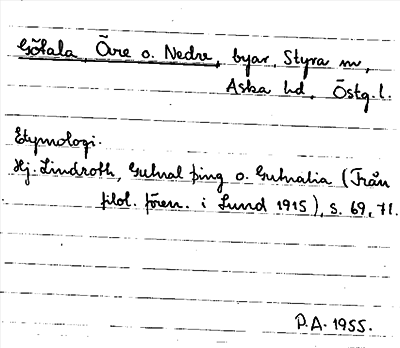 Götala, Övre o. Nedre, byar, Styra sn,
Aska hd, Östg.l.
Etymologi.
Hj. Lindroth, Gutnal þing o. Gutnalia (Från
filol. fören. i Lund 1915), s. 69, 71.
P.A. 1955.